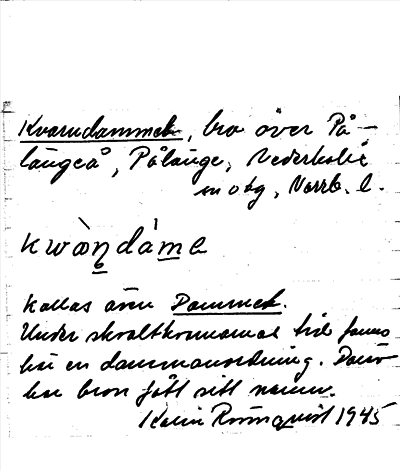 Kvarndammet, bro över På-
längeå, Pålänge, Nederkalix
sn o tg, Norrb. l.
kwàṇdàme
Kallas även Dammet.
Under skvaltkvarnarnas tid fanns
här en dammanordning. Därav
har bron fått sitt namn.
Karin Rönnquist 1945